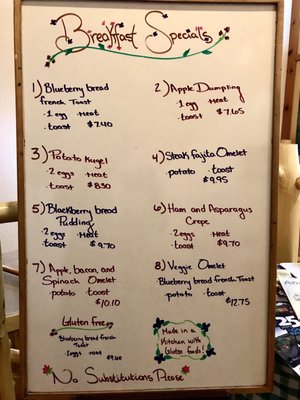 Breakfast Specials
1) Blueberry bread
french Toast
· 1 egg · Meat
· toast $7.40
2) Apple Dumpling
· 1 egg · Meat
· toast $7.65
3) Potato Kugel
· 2 eggs · Meat
· toast $8.30
4) Steak fajita Omelet
· potato · toast
$9.95
5) Blackberry bread
Pudding
· 2 eggs · Meat
· toast $9.70
6) Ham and Asparagus
Crepe
· 2 eggs · Meat
· toast $9.70
7) Apple, bacon, and
Spinach Omelet
· potato · toast
$10.10
8) Veggie Omelet
Blueberry bread french Toast
· potato · toast
$12.75
Gluten free
Blueberry bread french
Toast
· 2 eggs · Meat $9.60
Made in a
Kitchen with
Gluten foods!
No Substitutions Please